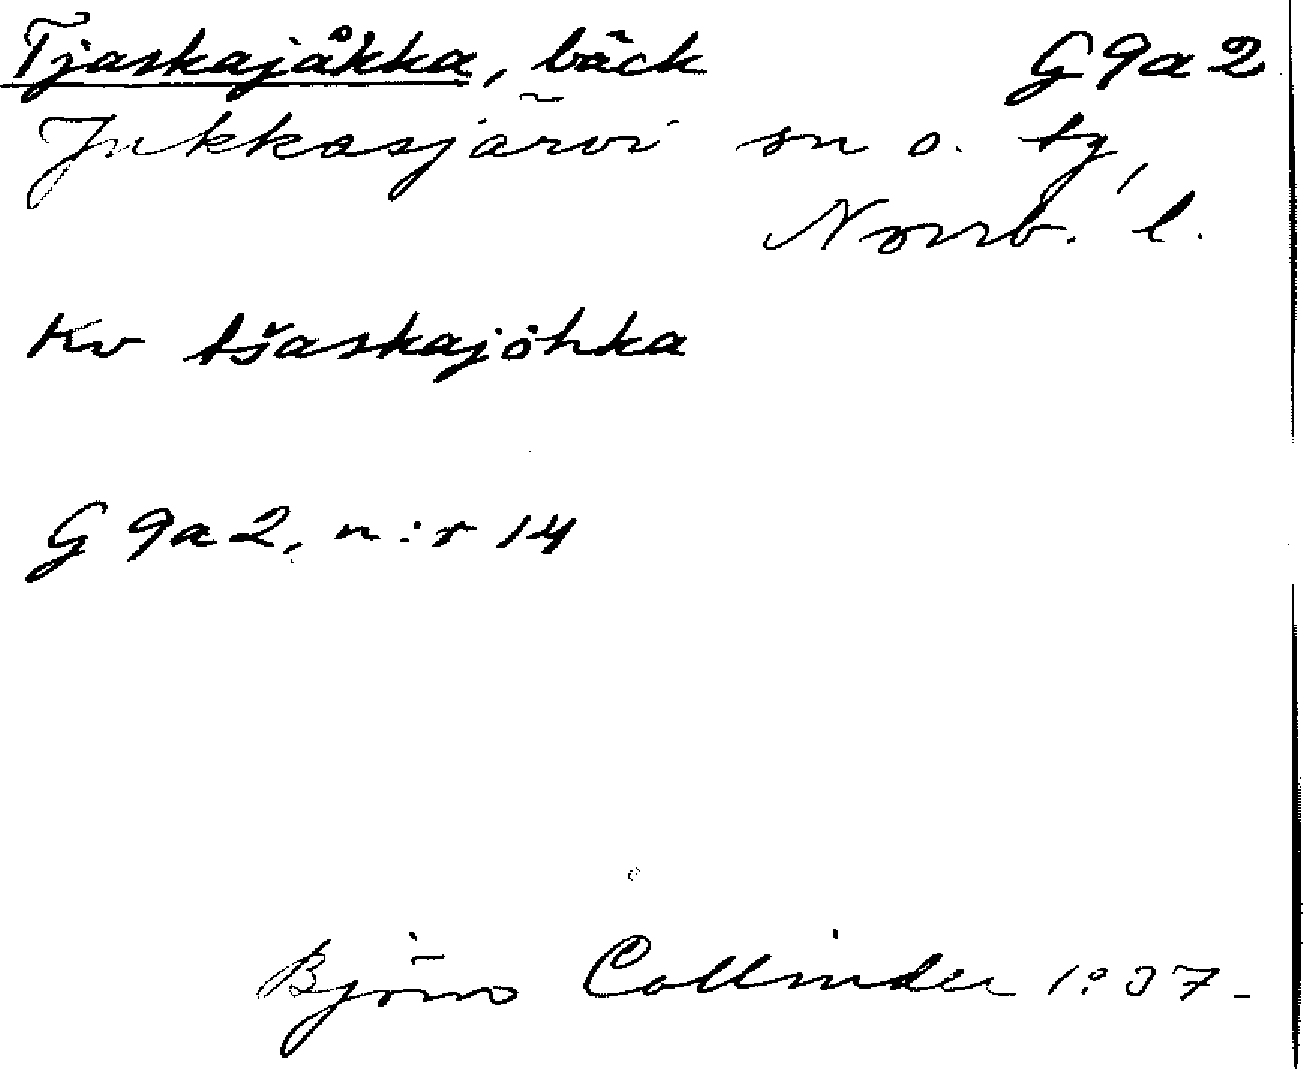 Tjaskajåkka, bäck G9a2
Jukkasjärvi sn o. tg,
Norrb. l.
Kv tšaskajöhka
G9a2, n:r 14
Björn Collinder 1937-